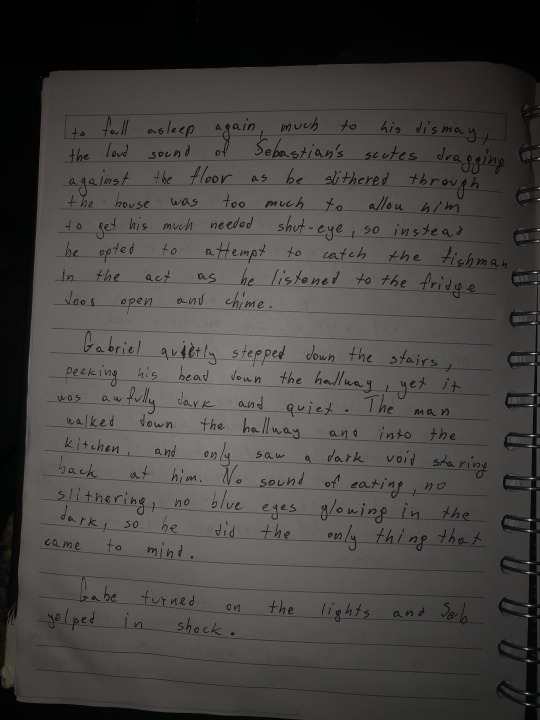 to fall asleep again, much to his dismay,
the loud sound of Sebastian's scutes dragging
against the floor as he slithered through
the house was too much to allow him
to get his much needed shut-eye, so instead
he opted to attempt to catch the fishman
in the act as he listened to the fridge
door open and chime.
Gabriel quietly stepped down the stairs,
peeking his head down the hallway, yet it
was awfully dark and quiet. The man
walked down the hallway and into the
kitchen, and only saw a dark void staring
back at him. No sound of eating, no
slithering, no blue eyes glowing in the
dark, so he did the only thing that
came to mind.
Gabe turned on the lights and Seb
yelped in shock.